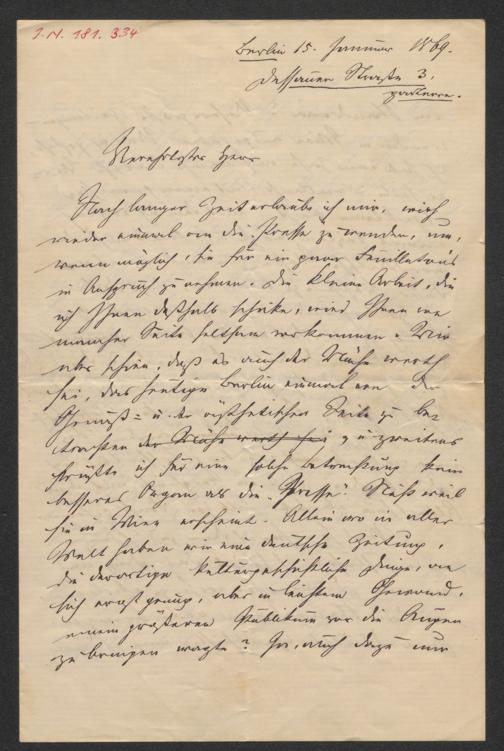 I.N. 181.334
Berlin 15. Januar 1869.
Dessauer Straße 3.
parterre.
Verehrtester Herr
Nach langer Zeit erlaube ich mir, mich
wieder einmal an die Presse zu wenden, um,
wenn möglich, sie für ein paar Feuilletons
in Anspruch zu nehmen. Die kleine Arbeit, die
ich Ihnen deßhalb schicke, wird Ihnen von
mancher Seite seltsam vorkommen. Mir
aber schien, daß es auch der Mühe werth
sei, das heutige Berlin einmal von der
Genuß= u. der ästhetischen Seite zu be=
trachten der Mühe werth sei, u. zweitens
wüßte ich für eine solche Betrachtung kein
besseres Organ als die "Presse". Nicht weil
sie in Wien erscheint. Allein wo in aller
Welt haben wir eine deutsche Zeitung,
die derartige kulturgeschichtliche Dinge, die
sich ernst genug, aber in leichtem Gewand,
einem größeren Publikum vor die Augen
zu bringen wagte? Ja, auch dazu nur